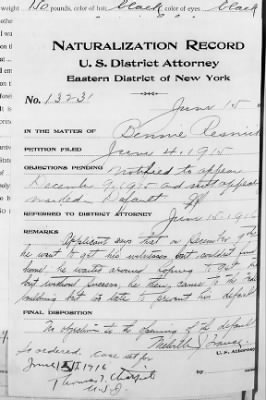 weight 150 pounds, color of hair, black color of eyes black
NATURALIZATION RECORD
U. S. District Attorney
Eastern District of New York
No. 13231
June 15
IN THE MATTER OF Bennie Resnick
PETITION FILED June 4, 1915
OBJECTIONS PENDING Notified to appear
December 9, 1915 and not appeal
marked Default
REFERRED TO DISTRICT ATTORNEY June 15, 1916
REMARKS
Applicant says that on December 9th
he went to get his witnesses but couldn't find
home, he waited around hoping to get
but without success, he then came to the Fed
building but too late to prevent his default
FINAL DISPOSITION
No objection to the opening of the default
U. S. Attorney
So ordered. Case set for
June 1916
Thomas I. Chatfield
U.S.J.